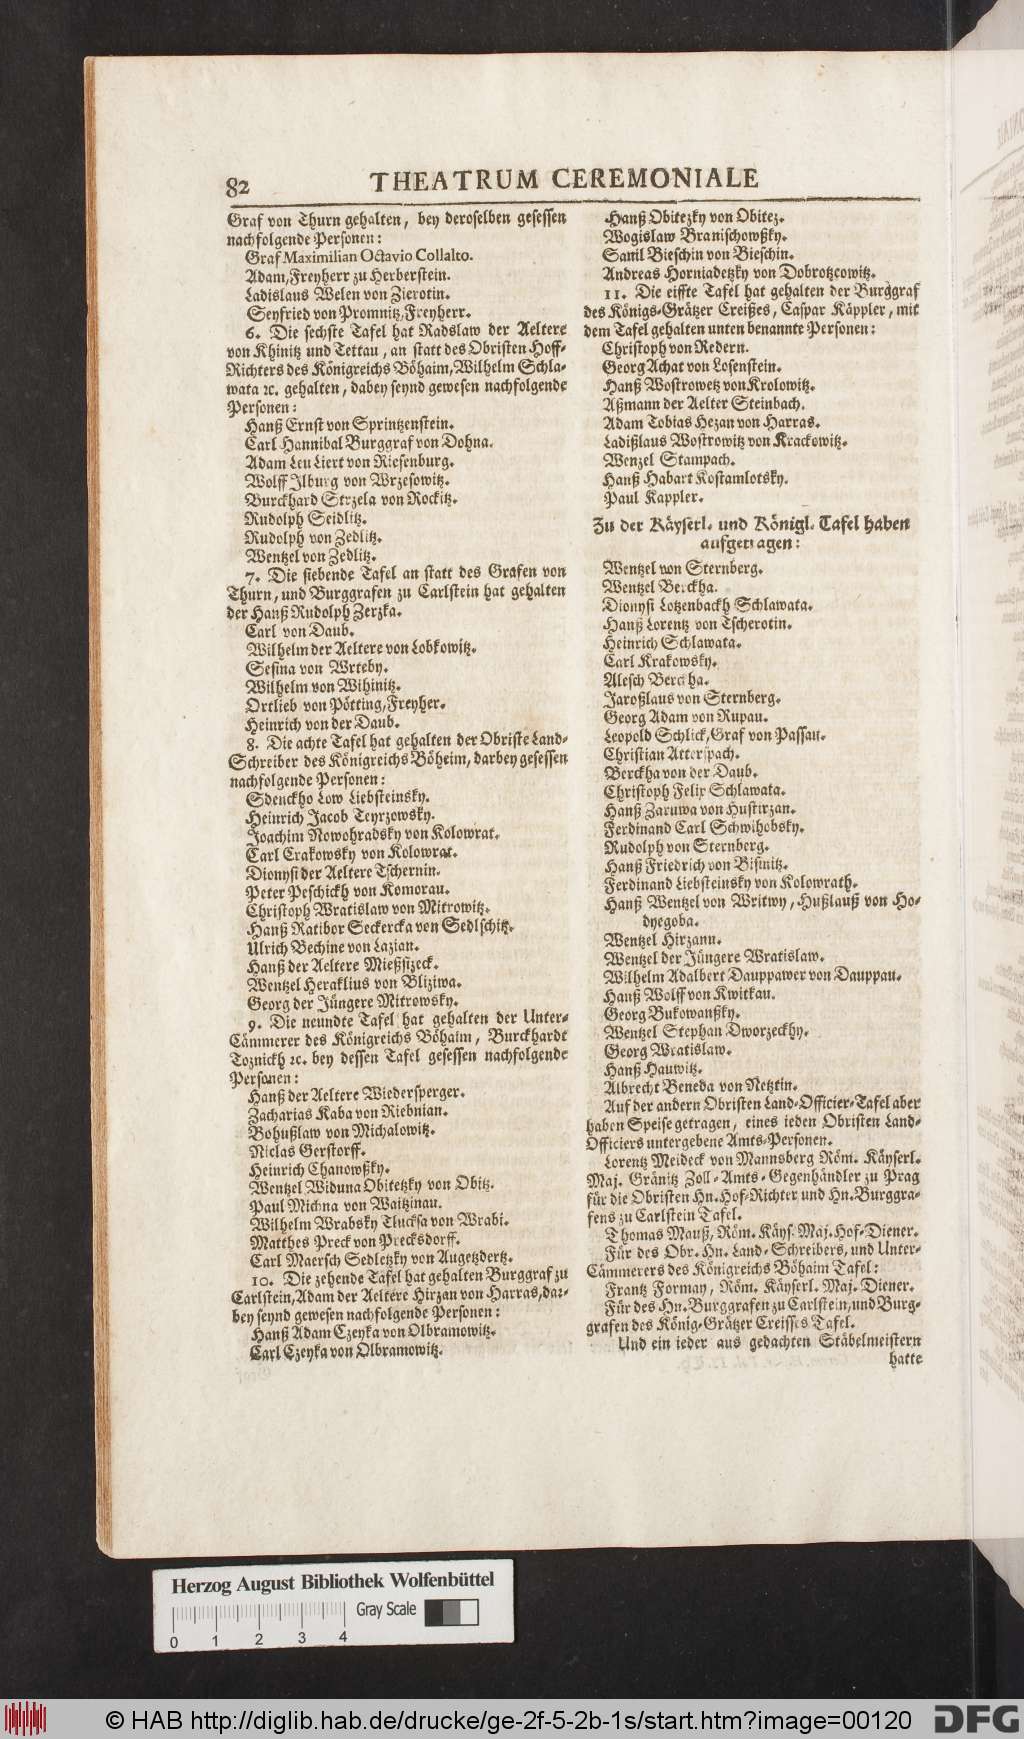 82
THEATRUM CEREMONIALE
Graf von Thurn gehalten, bey deroselben gesessen
nachfolgende Personen:
Graf Maximilian Octavio Collalto.
Adam, Freyherr zu Herberstein.
Ladislaus Welen von Zierotin.
Seyfried von Promnitz, Freyherr.
6. Die sechste Tafel hat Radslaw der Aeltere
von Khinitz und Tettau, an statt des Obristen Hoff-
Richters des Königreichs Böhaim, Wilhelm Schla-
wata ꝛc. gehalten, dabey seynd gewesen nachfolgende
Personen:
Hanß Ernst von Sprintzenstein.
Carl Hannibal Burggraf von Dohna.
Adam Leu Liert von Riesenburg.
Wolff Ilburg von Wrzesowitz.
Burckhard Strzela von Rockitz.
Rudolph Seidlitz.
Rudolph von Zedlitz.
Wentzel von Zedlitz.
7. Die siebende Tafel an statt des Grafen von
Thurn, und Burggrafen zu Carlstein hat gehalten
der Hanß Rudolph Zerzka.
Carl von Daub.
Wilhelm der Aeltere von Lobkowitz.
Sesina von Wrteby.
Wilhelm von Wihinitz.
Ortlieb von Pötting, Freyher.
Heinrich von der Daub.
8. Die achte Tafel hat gehalten der Obriste Land-
Schreiber des Königreichs Böheim, darbey gesessen
nachfolgende Personen:
Sdenckho Low Liebsteinsky.
Heinrich Jacob Teyrzowsky.
Joachim Nowohradsky von Kolowrat.
Carl Crakowsky von Kolowrat.
Dionysi der Aeltere Tschernin.
Peter Peschickh von Komorau.
Christoph Wratislaw von Mitrowitz.
Hanß Ratibor Seckercka von Sedlschitz.
Ulrich Bechine von Lazian.
Hanß der Aeltere Mießsizeck.
Wentzel Heraklius von Bliziwa.
Georg der Jüngere Mitrowsky.
9. Die neundte Tafel hat gehalten der Unter-
Cämmerer des Königreichs Böhaim, Burckhardt
Toznickh ꝛc. bey dessen Tafel gesessen nachfolgende
Personen:
Hanß der Aeltere Wiedersperger.
Zacharias Kaba von Riebnian.
Bohußlaw von Michalowitz.
Niclas Gerstorff.
Heinrich Chanowßky.
Wentzel Widuna Obitetzky von Obitz.
Paul Michna von Waitzinau.
Wilhelm Wrabsky Tlucksa von Wrabi.
Matthes Preck von Precksdorff.
Carl Maersch Sedletzky von Augetzdertz.
10. Die zehende Tafel hat gehalten Burggraf zu
Carlstein, Adam der Aeltere Hirzan von Harras, dar-
bey seynd gewesen nachfolgende Personen:
Hanß Adam Czeyka von Olbramowitz.
Carl Czeyka von Olbramowitz.
Hanß Obitezky von Obitez.
Wogislaw Branischowßky.
Samil Bieschin von Bieschin.
Andreas Horniadetzky von Dobrotzcowitz.
11. Die eiffte Tafel hat gehalten der Burggraf
des Königs-Grätzer Creißes, Caspar Käppler, mit
dem Tafel gehalten unten benannte Personen:
Christoph von Redern.
Georg Achat von Losenstein.
Hanß Wostrowetz von Krolowitz.
Aßmann der Aelter Steinbach.
Adam Tobias Hezan von Harras.
Ladißlaus Wostrowitz von Krackowitz.
Wenzel Stampach.
Hanß Habart Kostamlotsky.
Paul Kappler.
Zu der Käyserl. und Königl. Tafel haben
aufgetragen:
Wentzel von Sternberg.
Wentzel Berckha.
Dionysi Lotzenbackh Schlawata.
Hanß Lorentz von Tscherotin.
Heinrich Schlawata.
Carl Krakowsky.
Alesch Berckha.
Jaroßlaus von Sternberg.
Georg Adam von Rupau.
Leopold Schlick, Graf von Passau.
Christian Atterspach.
Berckha von der Daub.
Christoph Felix Schlawata.
Hanß Zaruwa von Hustirzan.
Ferdinand Carl Schwihobsky.
Rudolph von Sternberg.
Hanß Friedrich von Bisinitz.
Ferdinand Liebsteinsky von Kolowrath.
Hanß Wentzel von Writwy, Hußlauß von Ho-
dyegoba.
Wentzel Hirzann.
Wentzel der Jüngere Wratislaw.
Wilhelm Adalbert Dauppawer von Dauppau.
Hanß Wolff von Kwitkau.
Georg Bukowanßky.
Wentzel Stephan Dworzeckhy.
Georg Wratislaw.
Hanß Hauwitz.
Albrecht Beneda von Netztin.
Auf der andern Obristen Land-Officier-Tafel aber
haben Speise getragen, eines ieden Obristen Land-
Officiers untergebene Amts-Personen.
Lorentz Meideck von Mannsberg Röm. Käyserl.
Maj. Gränitz Zoll-Amts-Gegenhändler zu Prag
für die Obristen Hn. Hof-Richter und Hn. Burggra-
fens zu Carlstein Tafel.
Thomas Mauß, Röm. Käys. Maj. Hof-Diener.
Für des Obr. Hn. Land-Schreibers, und Unter-
Cämmerers des Königreichs Böhaim Tafel:
Frantz Formay, Röm. Käyserl. Maj. Diener.
Für des Hn. Burggrafen zu Carlstein, und Burg-
grafen des König-Grätzer Creisses Tafel.
Und ein ieder aus gedachten Stäbelmeistern
hatte
Herzog August Bibliothek Wolfenbüttel
Gray Scale
0 1 2 3 4
© HAB http://diglib.hab.de/drucke/ge-2f-5-2b-1s/start.htm?image=00120
DFG